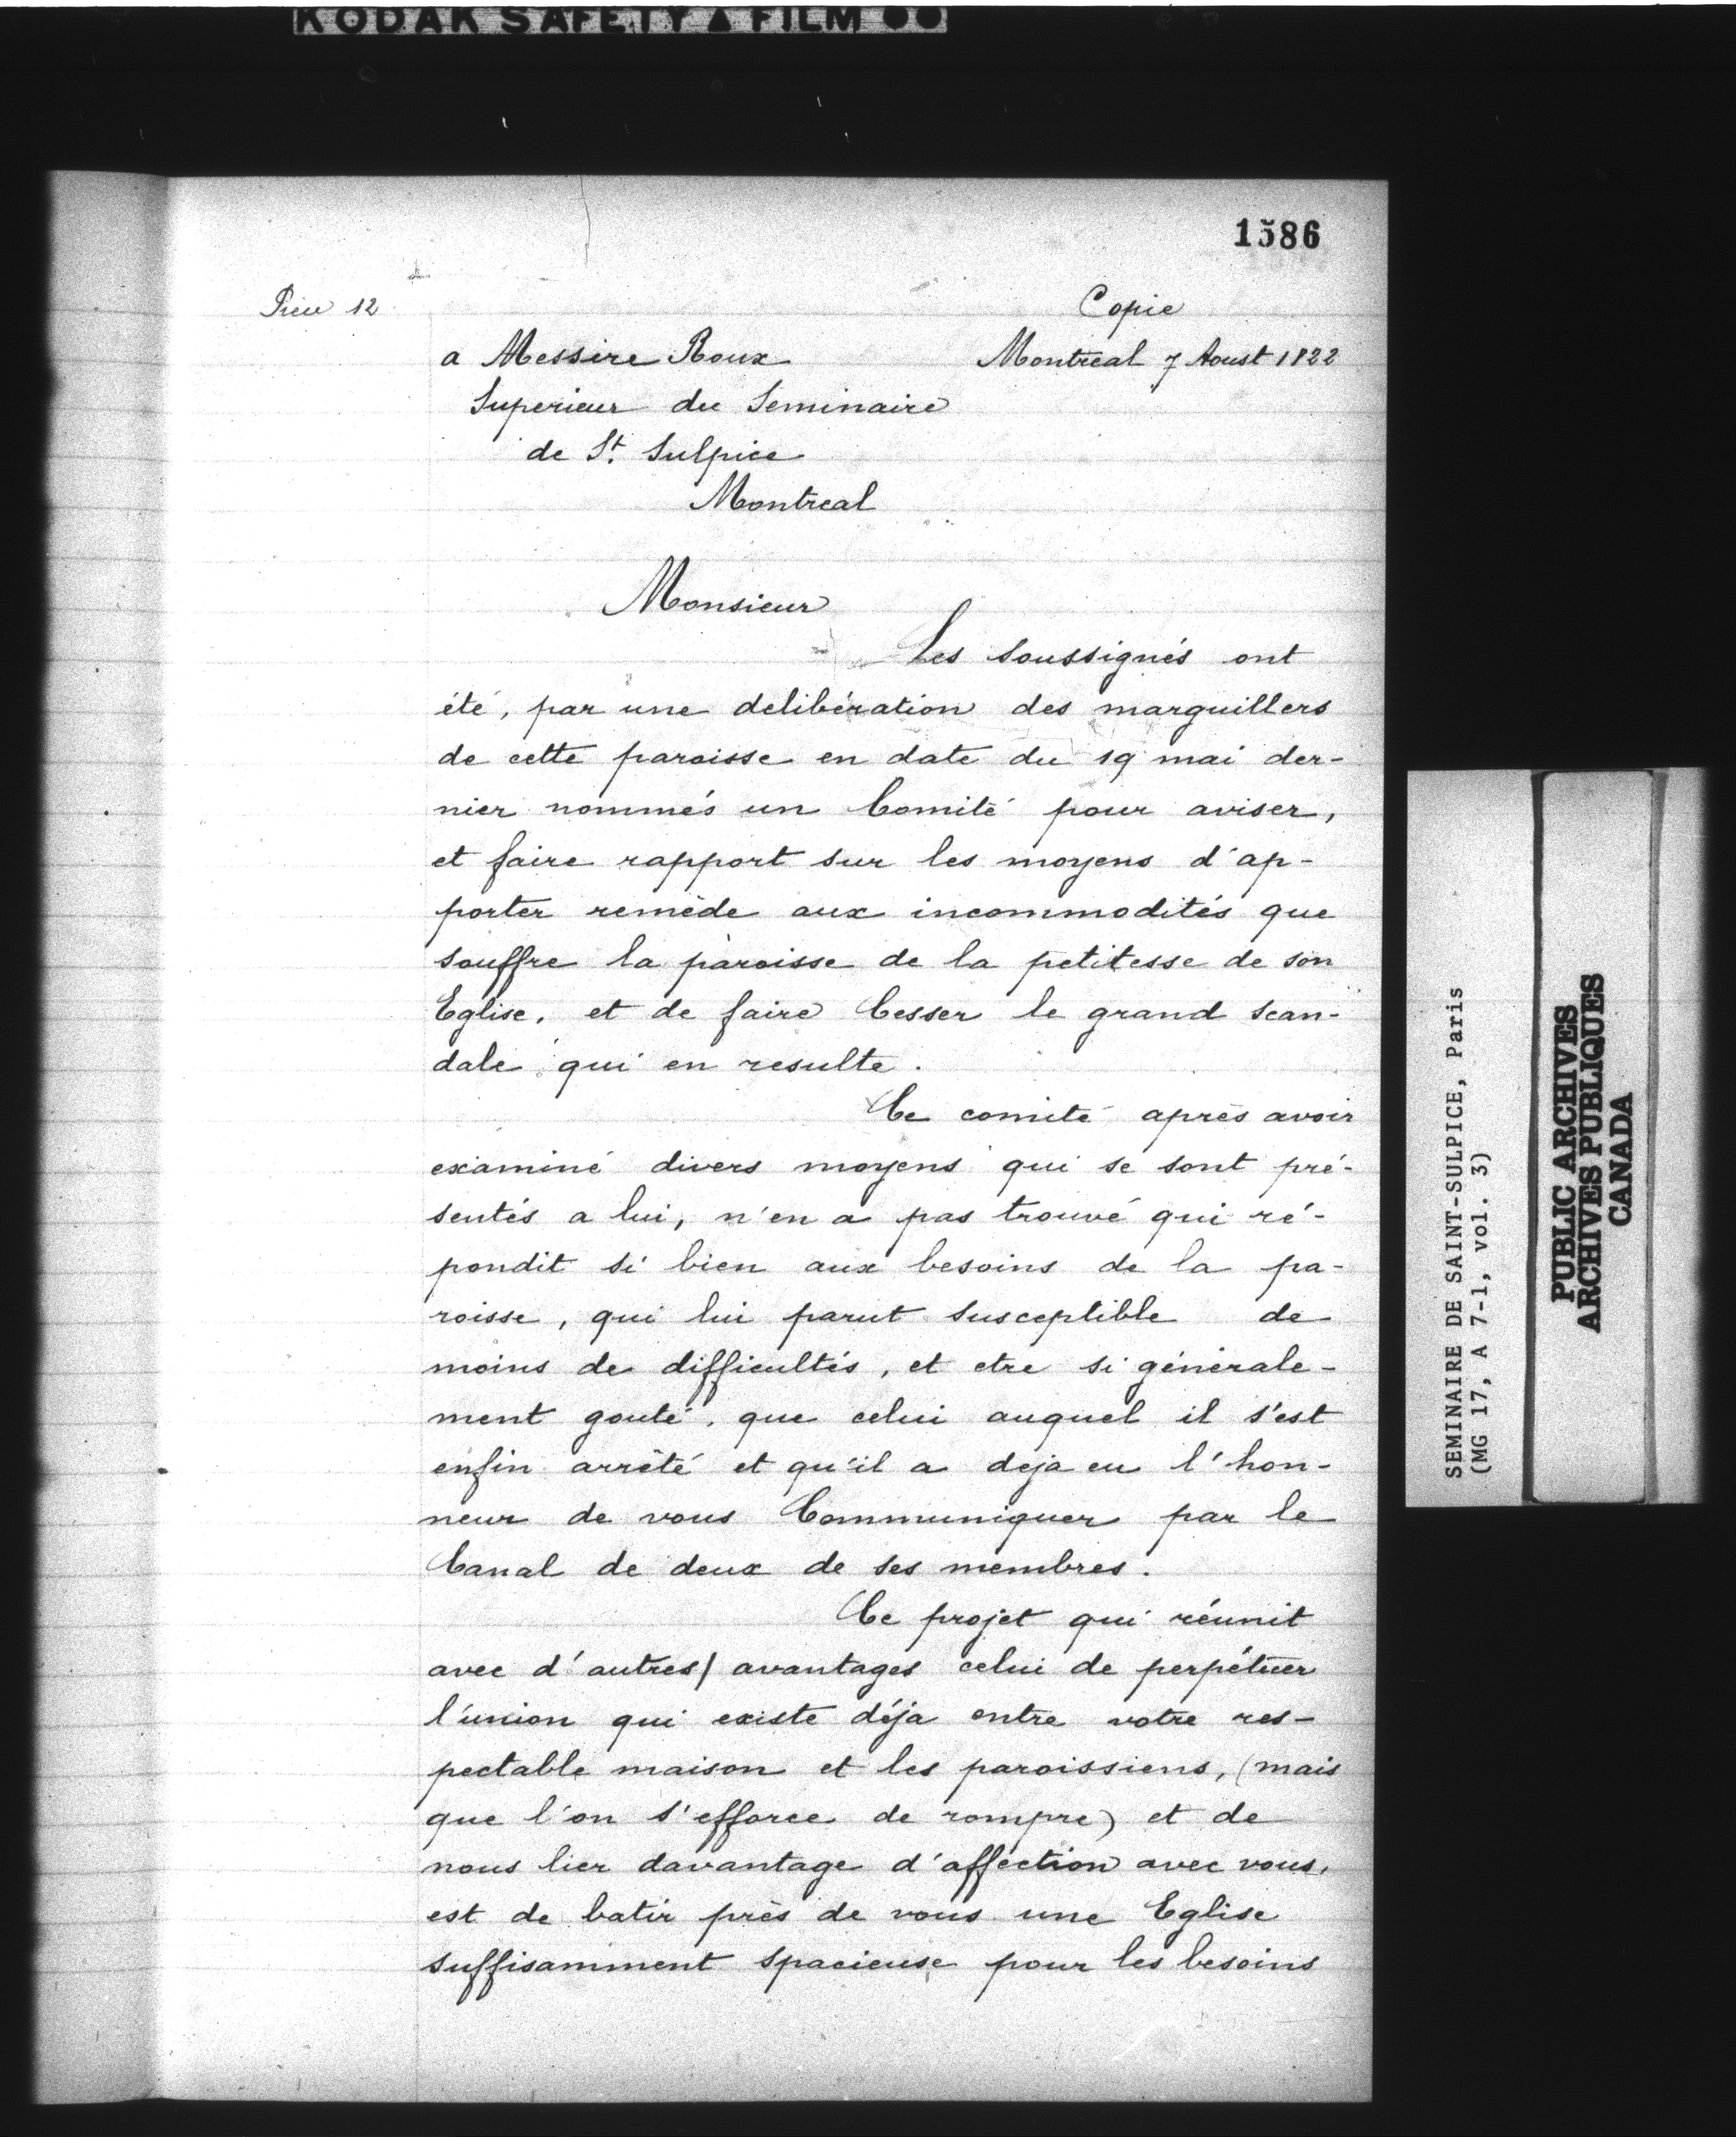 KODAK SAFETY ▲ FILM ●●
1586
Piece 12
Copie
a Messire Roux
Montreal 7 Aoust 1822
Superieur du Seminaire
de St. Sulpice
Montreal
Monsieur
Les soussignés ont
été, par une delibération des marguillers
de cette paroisse en date du 19 mai der-
nier nommés un Comité pour aviser,
et faire rapport sur les moyens d'ap-
porter remède aux incommodités que
souffre la paroisse de la petitesse de son
Eglise, et de faire Cesser le grand scan-
dale qui en resulte.
Ce comité après avoir
examiné divers moyens qui se sont pré-
sentés a lui, n'en a pas trouvé qui ré-
pondit si bien aux besoins de la pa-
roisse, qui lui parut susceptible de
moins de difficultés, et etre si générale-
ment gouté, que celui auquel il s'est
enfin arrêté et qu'il a deja eu l'hon-
neur de vous Communiquer par le
Canal de deux de ses membres.
Ce projet qui réunit
avec d'autres/ avantages celui de perpétuer
l'union qui existe déja entre votre res-
pectable maison et les paroissiens, (mais
que l'on s'efforce de rompre) et de
nous lier davantage d'affection avec vous,
est de batir près de vous une Eglise
suffisamment spacieuse pour les besoins
SEMINAIRE DE SAINT-SULPICE, Paris
(MG 17, A 7-1, vol. 3)
PUBLIC ARCHIVES
ARCHIVES PUBLIQUES
CANADA